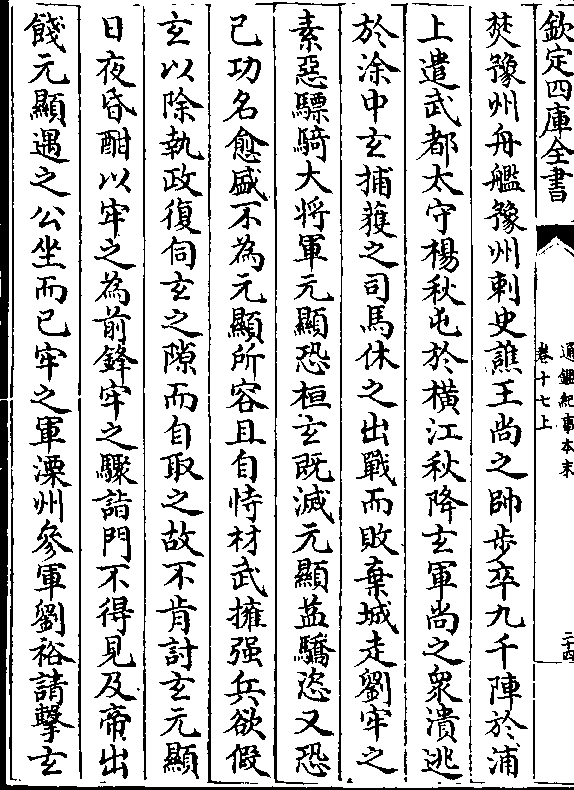 欽定四庫全書
通鑑紀事本末
卷十七上
二十四
焚豫州舟艦豫州刺史譙王尚之帥步卒九千陣於浦
上遣武都太守楊秋屯於橫江秋降玄軍尚之衆潰逃
於涂中玄捕蒦之司馬休之出戰而敗棄城走劉牢之
素惡驃騎大將軍元顯恐桓玄既滅元顯益驕恣又恐
己功名愈盛不為元顯所容且自恃材武擁强兵欲假
玄以除執政復伺玄之隙而自取之故不肯討玄元顯
日夜昏酣以牢之為前鋒牢之驟詣門不得見及帝出
餞元顯遇之公坐而已牢之軍溧州參軍劉裕請擊玄